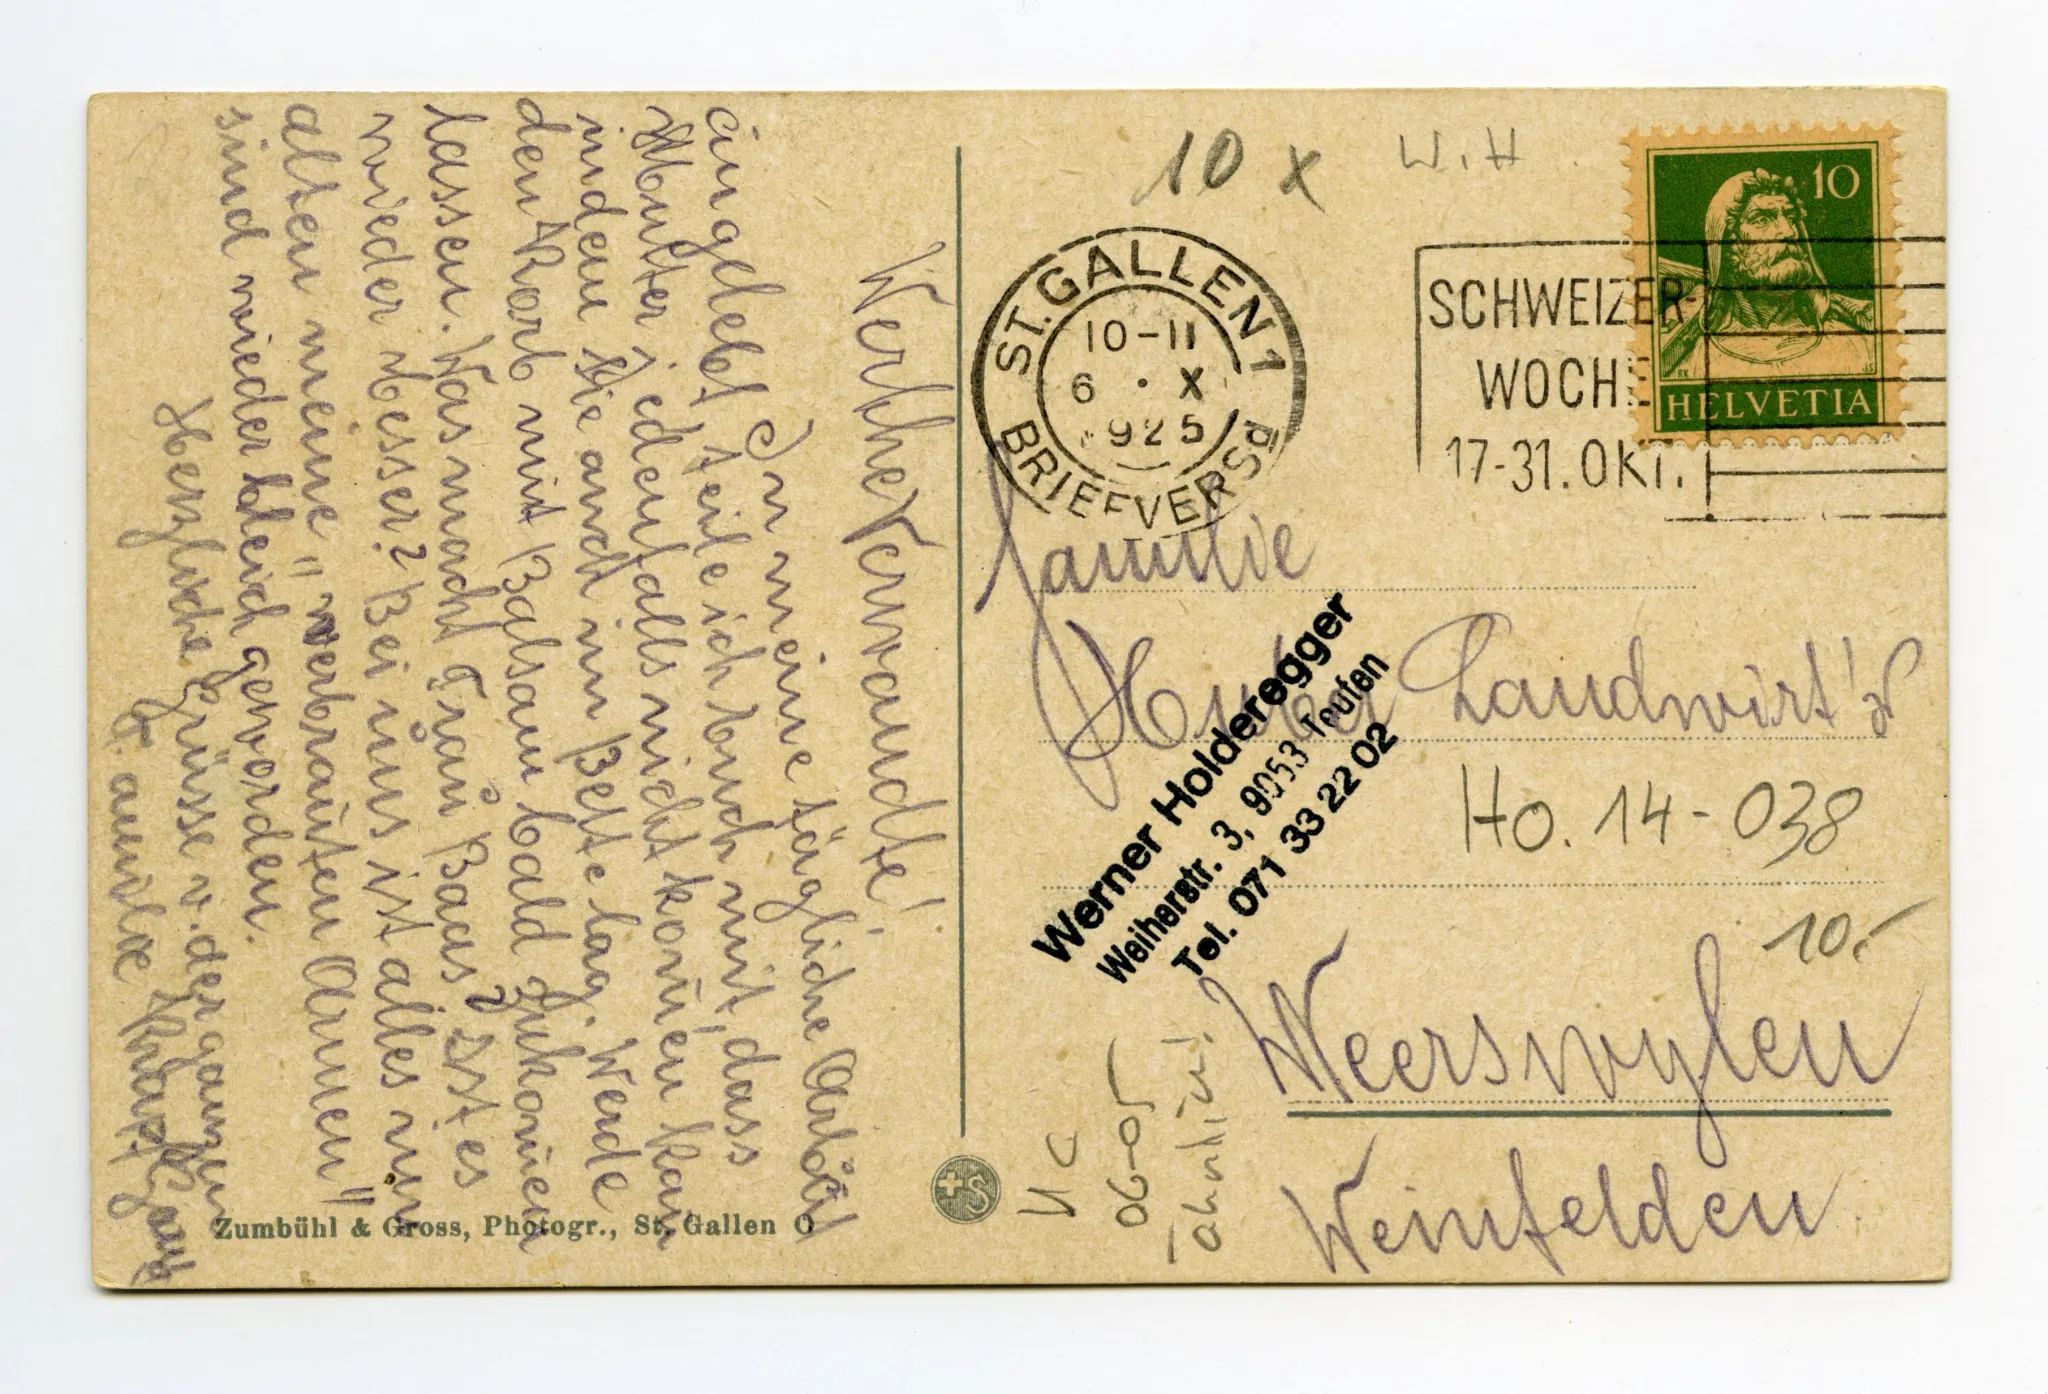 Werthe Verwandte!
In meine tägliche Arbeit
eingelebt teile ich Euch mit, dass
Mutter jedenfalls nicht kom̄en kan
indem Sie auch im Bette lag. Werde
den Korb mit Balsam bald zukom̄en
lassen. Was macht Frau Baas? Ist es
wieder besser? Bei uns ist alles im
alten meine "verbrauten Armen"
sind wieder bleich geworden.
Herzliche Grüsse v. der ganzen
Familie
Zumbühl & Gross, Photogr., St. Gallen O
10 x
W. H.
ST. GALLEN 1
10-11
6 · X
925
BRIEFVERSD
SCHWEIZER-
WOCHE
17-31. OKT.
10
HELVETIA
Familie
Huber Landwirt's
Werner Holderegger
Weiherstr. 3, 9053 Teufen
Tel. 071 33 22 02
Ho. 14-038
10.-
Weerswylen
Weinfelden
06-05